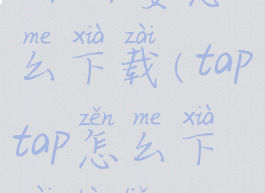 me xià zài
么下载(tap
zěn me xià
tap怎么下